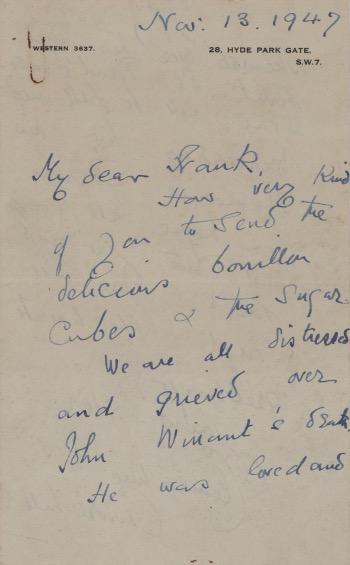 Nov. 13. 1947
WESTERN 3637.
28, HYDE PARK GATE,
S.W.7.
My dear Frank,
How very Kind
of you to send the
delicious bouillon
Cubes & the Sugar.
We are all distressed
and grieved over
John Winant's death.
He was loved and